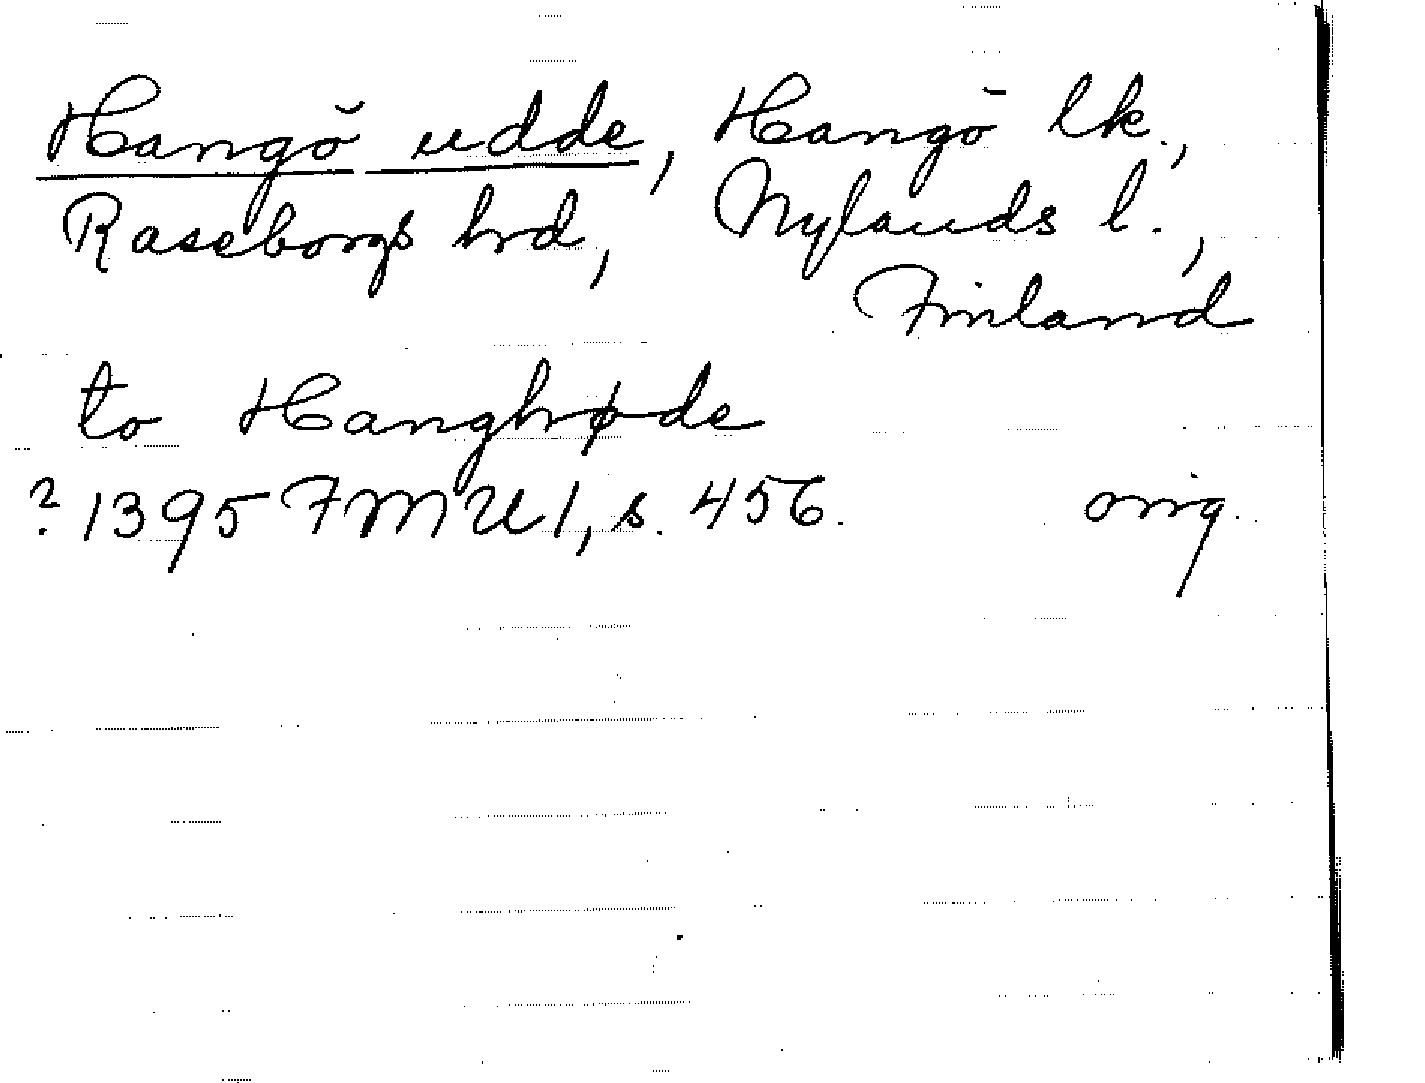 Hangö udde, Hangö lk.,
Raseborgs hrd, Nylands l.,
Finland
to Hanghrøde
? 1395 FMU 1, s. 456. orig.